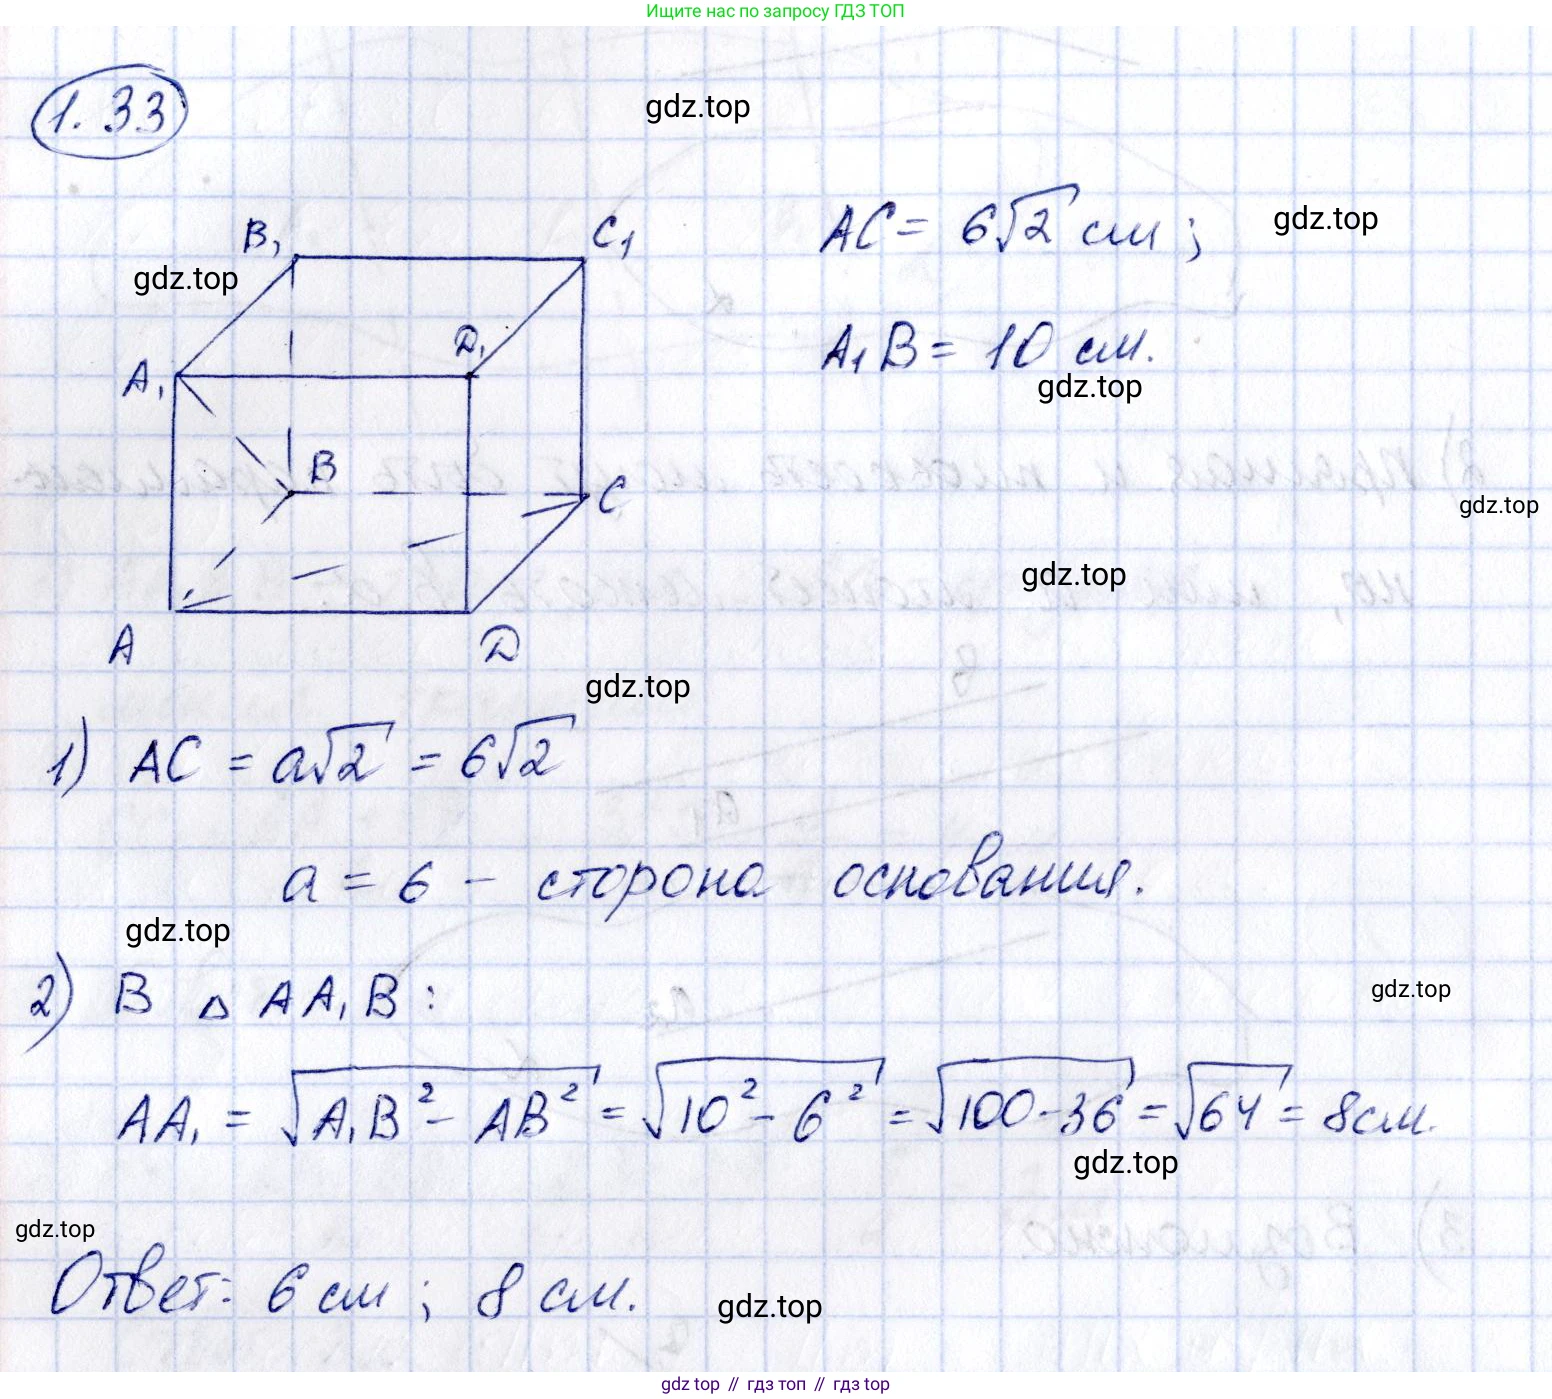 Ищите нас по запросу ГДЗ ТОП
1.33
gdz.top
B₁
C₁
AC = 6√2 см ;
gdz.top
gdz.top
D₁
A₁
A₁B = 10 см.
gdz.top
B
C
gdz.top
gdz.top
A
D
gdz.top
1) AC = a√2 = 6√2
a = 6 - сторона основания.
gdz.top
2) В △ AA₁B :
gdz.top
AA₁ = √(A₁B² - AB²) = √(10² - 6²) = √(100-36) = √64 = 8см.
gdz.top
gdz.top
Ответ: 6 см ; 8 см.
gdz.top
gdz top // гдз топ // гдз top